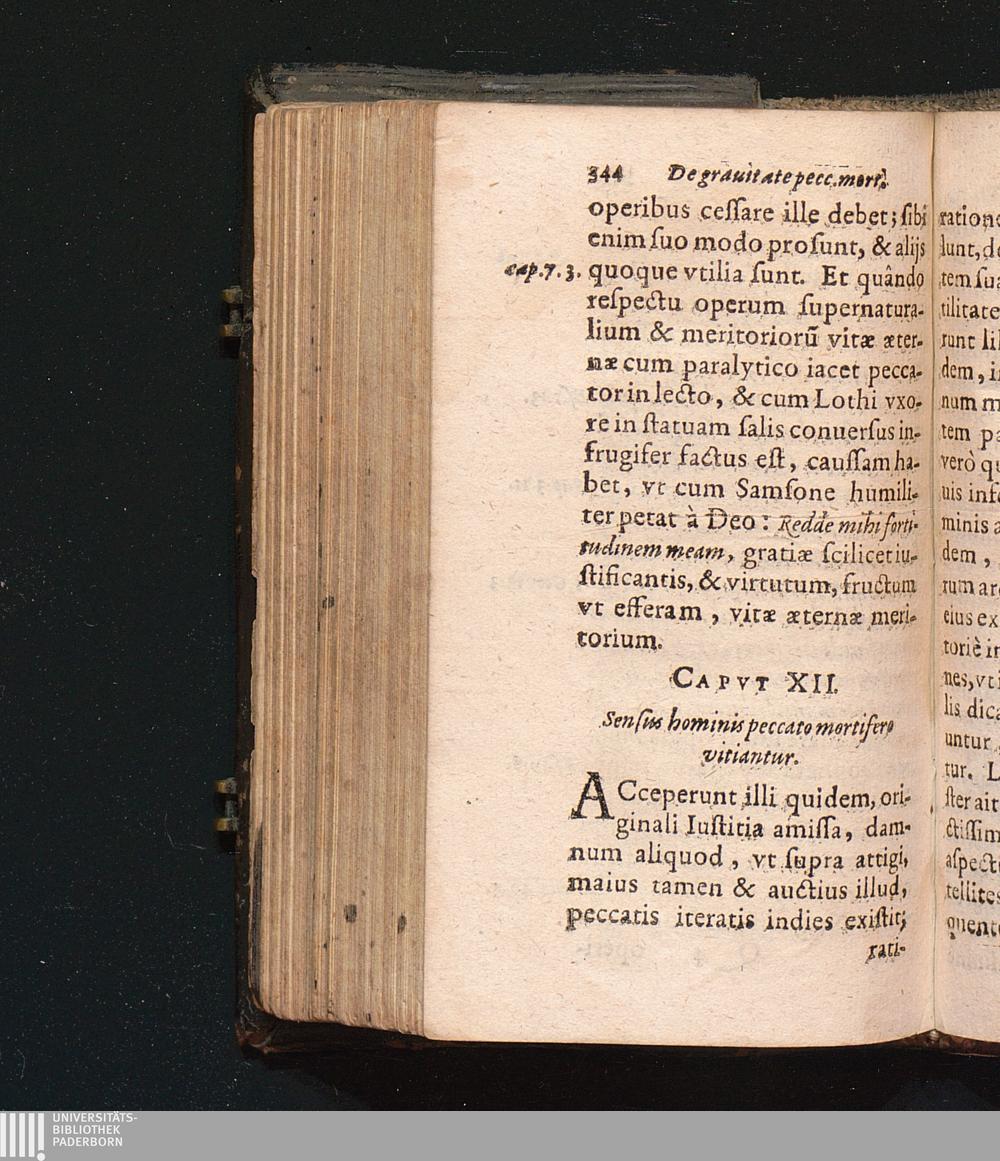 344 De grauitate pecc. mort.
operibus ceſſare ille debet; ſibi
enim ſuo modo proſunt, & alijs
cap. 7. 3. quoque vtilia ſunt. Et quândo
reſpectu operum ſupernatura-
lium & meritoriorũ vitæ æter-
næ cum paralytico iacet pecca-
tor in lecto, & cum Lothi vxo-
re in ſtatuam ſalis conuerſus in-
frugifer factus eſt, cauſſam ha-
bet, vt cum Samſone humili-
ter petat à Deo: Redde mihi forti-
tudinem meam, gratiæ ſcilicet iu-
ſtificantis, & virtutum, fructum
vt efferam, vitæ æternæ meri-
torium.
CAPVT XII.
Senſus hominis peccato mortifero
vitiantur.
ACceperunt illi quidem, ori-
ginali Iuſtitia amiſſa, dam-
num aliquod, vt ſupra attigi,
maius tamen & auctius illud,
peccatis iteratis indies exiſtit;
rati-
ratione
lunt, de
tem ſua
tilitate
runt li
dem, i
num m
tem pa
verò q
uis inf
minis a
dem,
rum ar
eius ex
toriè i
nes, vt i
lis dica
untur
tur. L
ſter ait
ctiſſim
aſpect
tellites
quent
UNIVERSITÄTS-
BIBLIOTHEK
PADERBORN